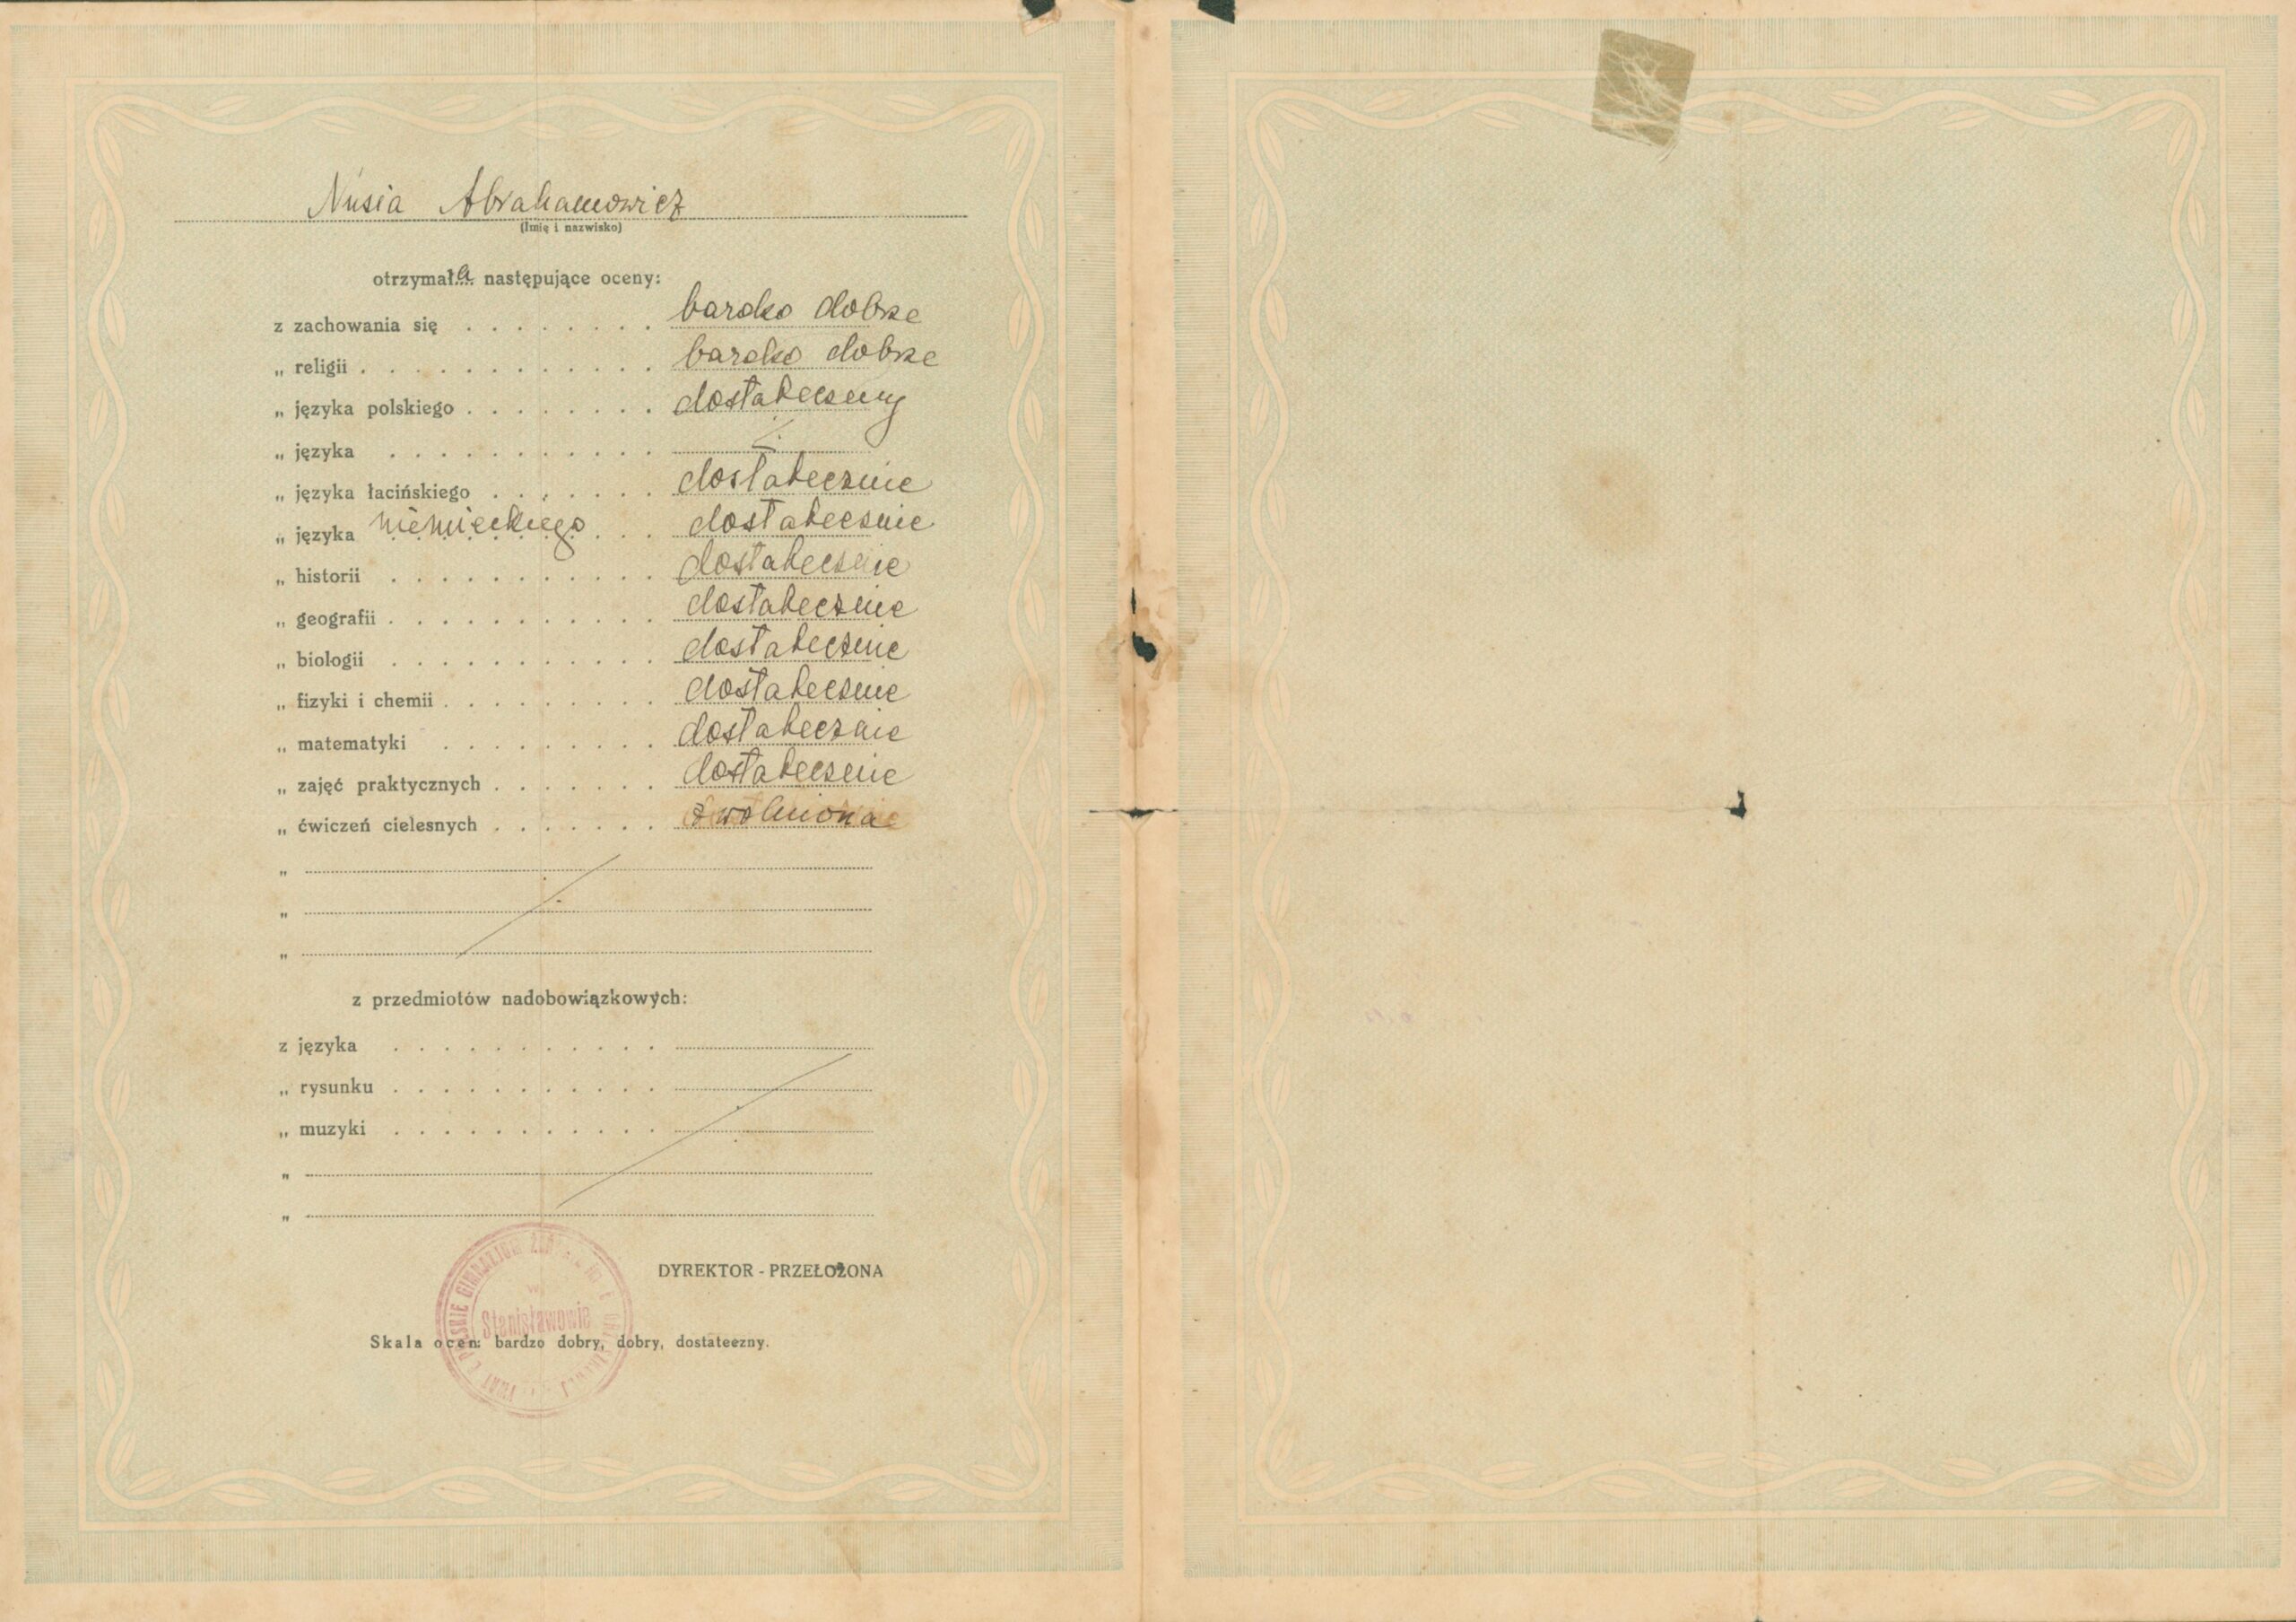 Nusia Abrahamowicz
(Imię i nazwisko)
otrzymała następujące oceny:
z zachowania się . . . . . . . . bardzo dobrze
„ religii . . . . . . . . . . . . bardzo dobrze
„ języka polskiego . . . . . . . . dostateczny
„ języka . . . . . . . . . . .
„ języka łacińskiego . . . . . . . dostatecznie
„ języka niemieckiego . . . dostatecznie
„ historii . . . . . . . . . . . dostatecznie
„ geografii . . . . . . . . . . . dostatecznie
„ biologii . . . . . . . . . . . dostatecznie
„ fizyki i chemii . . . . . . . . . dostatecznie
„ matematyki . . . . . . . . . dostatecznie
„ zajęć praktycznych . . . . . . . dostatecznie
„ ćwiczeń cielesnych . . . . . . . zwolniona
„
„
„
z przedmiotów nadobowiązkowych:
z języka . . . . . . . . . . .
„ rysunku . . . . . . . . . . .
„ muzyki . . . . . . . . . . .
„
„
GIMNAZJUM
w
Stanisławowie
DYREKTOR - PRZEŁOŻONA
Skala ocen: bardzo dobry, dobry, dostateczny.